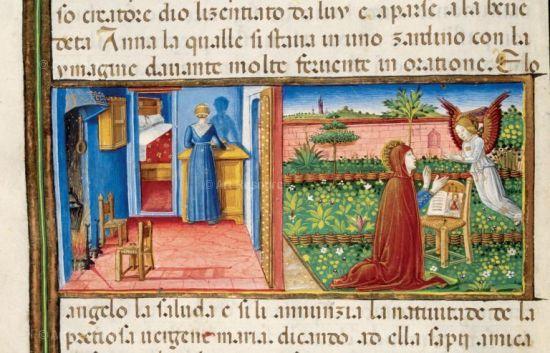 so creatore dio lizentiato da luy e aparse a la bene
deta Anna la qualle si stava in uno zardino con la
ymagine davante molte fervente in oratione. E lo
angelo la saluda e sili annunzia la natuvitade de la
pretiosa vergene maria. dicando ad ella sapij amica